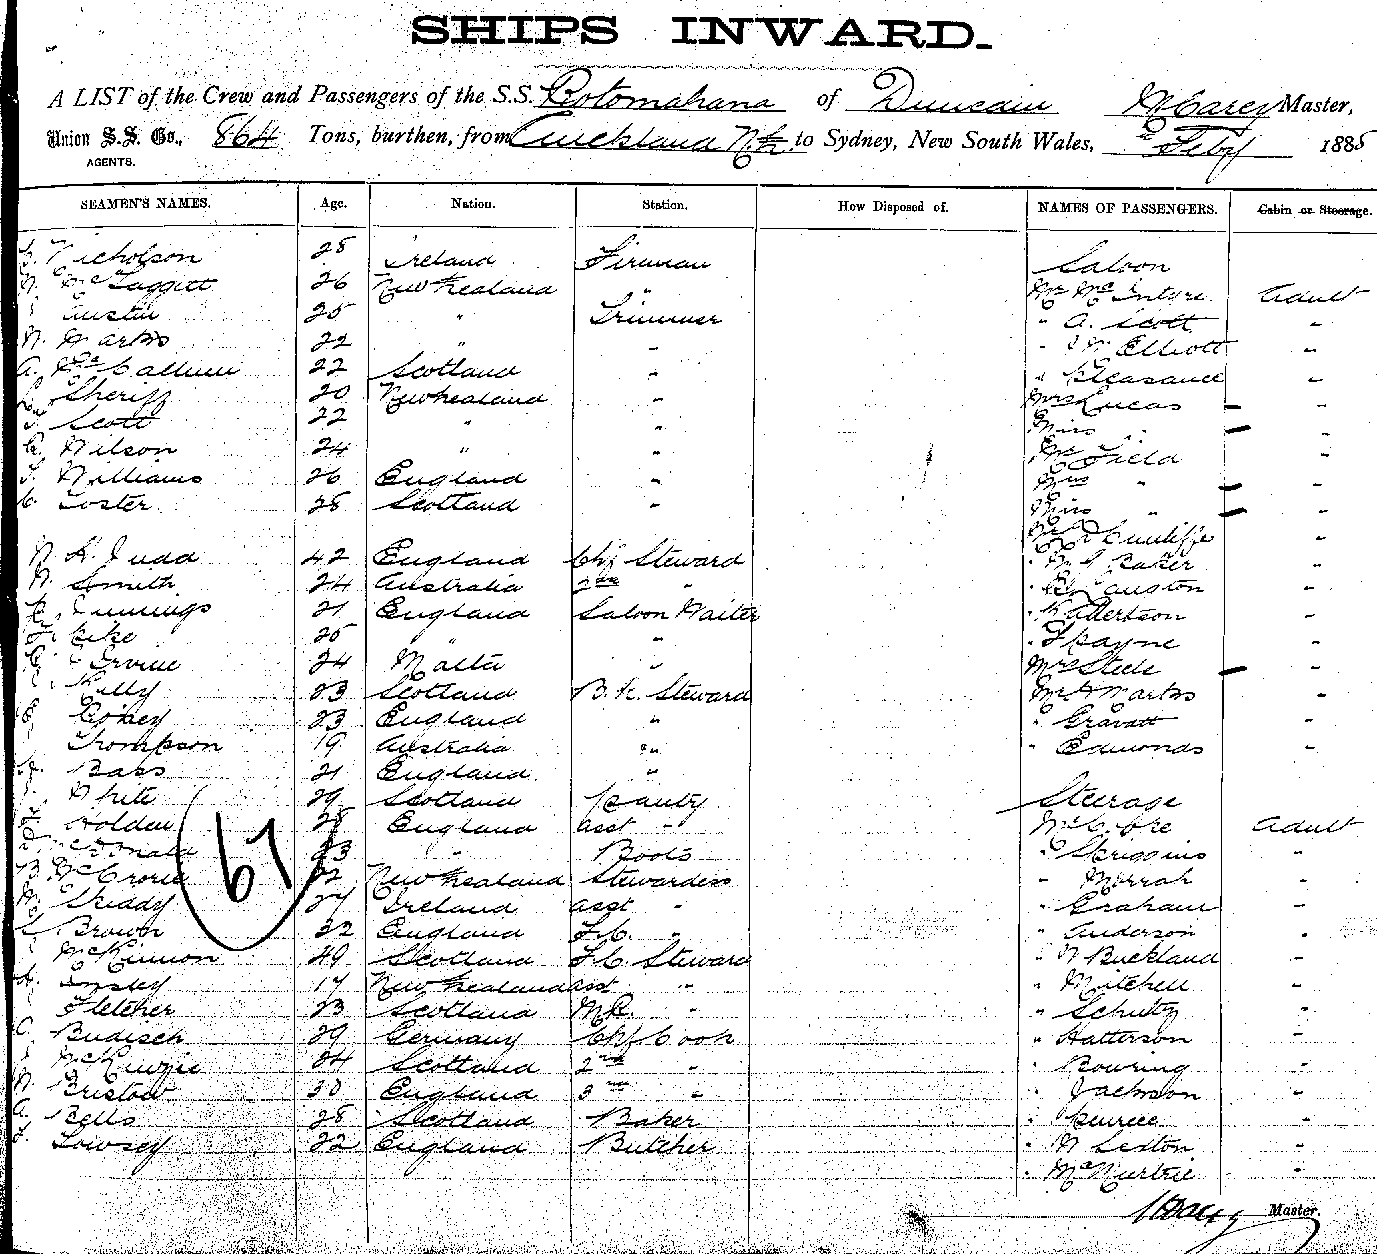 SHIPS INWARD.
A LIST of the Crew and Passengers of the S.S. Rotomahana of Duncain McCarey Master,
Union S.S. Co., 864 Tons, burthen, from Auckland N.Z. to Sydney, New South Wales, Feby 1885
AGENTS.
SEAMEN'S NAMES. Age. Nation. Station. How Disposed of. NAMES OF PASSENGERS. Cabin or Steerage.
Nicholson 28 Ireland Fireman Saloon
McTaggett 26 New Zealand " Mr McIntyre Adult
Austin 25 " Trimmer " A. Scott "
W. Marks 22 " " " Elliott "
A. McCallum 22 Scotland " " Pleasance "
Sheriff 20 New Zealand " Mrs Lucas "
Scott 22 " " Miss " "
Wilson 24 " " Mr Field "
Williams 26 England " Mrs " "
Foster 28 Scotland " Miss " "
Cunliffe "
W. H. Judd 42 England Chf Steward " Baker "
W. Smith 24 Australia 2nd " " Langton "
Jennings 21 England Saloon Waiter "
Pike 25 " " " Payne "
Irvine 24 Malta " Mrs Steele "
Kelly 23 Scotland B.R. Steward Mr H Marks "
23 England " " Gravatt "
Thompson 19 Australia " " Edmonds "
Bass 21 England "
White 29 Scotland Pantry Steerage
Holden 28 England asst " Adult
McDonald 23 " Boots " Spriggins "
McCrorie 22 New Zealand Stewardess " Morrah "
Skiddy 27 Ireland asst " " Graham "
Brown 32 England F.C. " " Anderson "
McKinnon 49 Scotland F.C. Steward " W Buckland "
17 New Zealand asst " " Mitchell "
Fletcher 23 Scotland " " Schultz "
Budisch 29 Germany Chf Cook " Hatterson "
McKenzie 24 Scotland 2nd " " Bowring "
Bristow 30 England 3rd " " Jackson "
Bells 28 Scotland Baker "
Lowsey 22 England Butcher " W Sexton "
" McMurtrie "
67
Master.